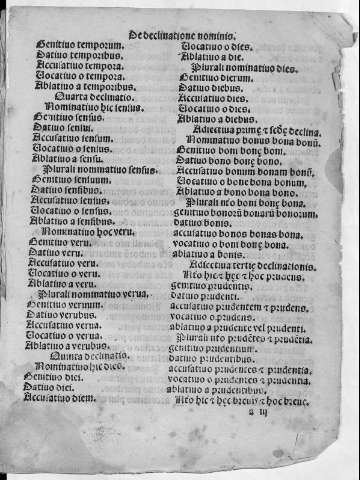 De declinatione nominis.
Genitiuo temporum.
Datiuo temporibus.
Accusatiuo tempora.
Vocatiuo o tempora.
Ablatiuo a temporibus.
Quarta declinatio.
Nominatiuo hic sensus.
Genitiuo sensus.
Datiuo sensui.
Accusatiuo sensum.
Vocatiuo o sensus.
Ablatiuo a sensu.
Plurali nominatiuo sensus.
Genitiuo sensuum.
Datiuo sensibus.
Accusatiuo sensus.
Vocatiuo o sensus.
Ablatiuo a sensibus.
Nominatiuo hoc veru.
Genitiuo veru.
Datiuo veru.
Accusatiuo veru.
Vocatiuo o veru.
Ablatiuo a veru.
Plurali nominatiuo verua.
Genitiuo veruum.
Datiuo verubus.
Accusatiuo verua.
Vocatiuo o verua.
Ablatiuo a verubus.
Quinta declinatio.
Nominatiuo hic dies.
Genitiuo diei.
Datiuo diei.
Accusatiuo diem.
Vocatiuo o dies.
Ablatiuo a die.
Plurali nominatiuo dies.
Genitiuo dierum.
Datiuo diebus.
Accusatiuo dies.
Vocatiuo o dies.
Ablatiuo a diebus.
Adiectiua primę ⁊ scdę declina.
Nominatiuo bonus bona bonū.
Genitiuo boni bonę boni.
Datiuo bono bonę bono.
Accusatiuo bonum bonam bonū.
Vocatiuo o bone bona bonum.
Ablatiuo a bono bona bono.
Plurali nto boni bonę bona.
genitiuo bonorū bonarū bonorum.
datiuo bonis.
accusatiuo bonos bonas bona.
vocatiuo o boni bonę bona.
ablatiuo a bonis.
Adiectiua tertię declinationis.
Nto hic ⁊ hęc ⁊ hoc prudens.
genitiuo prudentis.
datiuo prudenti.
accusatiuo prudentem ⁊ prudens.
vocatiuo o prudens.
ablatiuo a prudente vel prudenti.
Plurali nto prudētes ⁊ prudētia.
genitiuo prudentium.
datiuo prudentibus.
accusatiuo prudentes ⁊ prudentia.
vocatiuo o prudentes ⁊ prudentia.
ablatiuo a prudentibus.
Nto hic ⁊ hęc breuis ⁊ hoc breue.
a iij